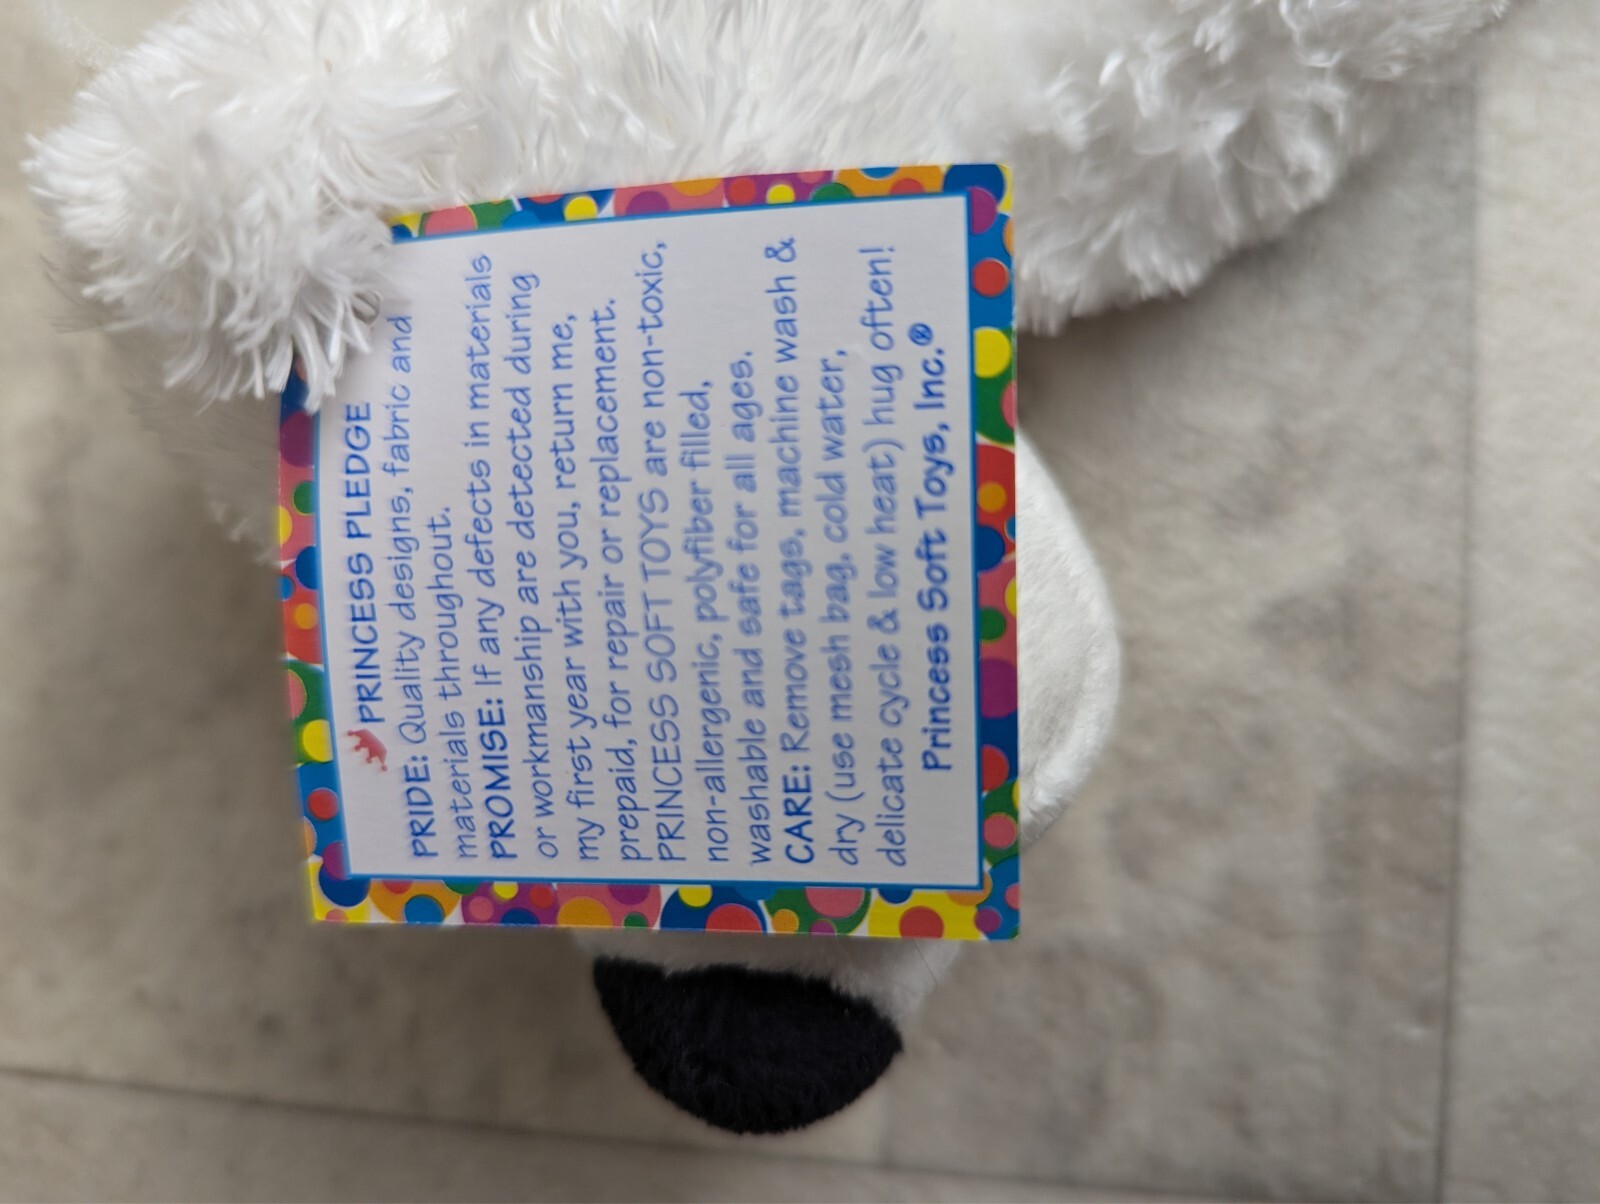 PRINCESS PLEDGE
PRIDE: Quality designs, fabric and
materials throughout.
PROMISE: If any defects in materials
or workmanship are detected during
my first year with you, return me,
prepaid, for repair or replacement.
PRINCESS SOFT TOYS are non-toxic,
non-allergenic, polyfiber filled,
washable and safe for all ages.
CARE: Remove tags, machine wash &
dry (use mesh bag, cold water,
delicate cycle & low heat) hug often!
Princess Soft Toys, Inc.®